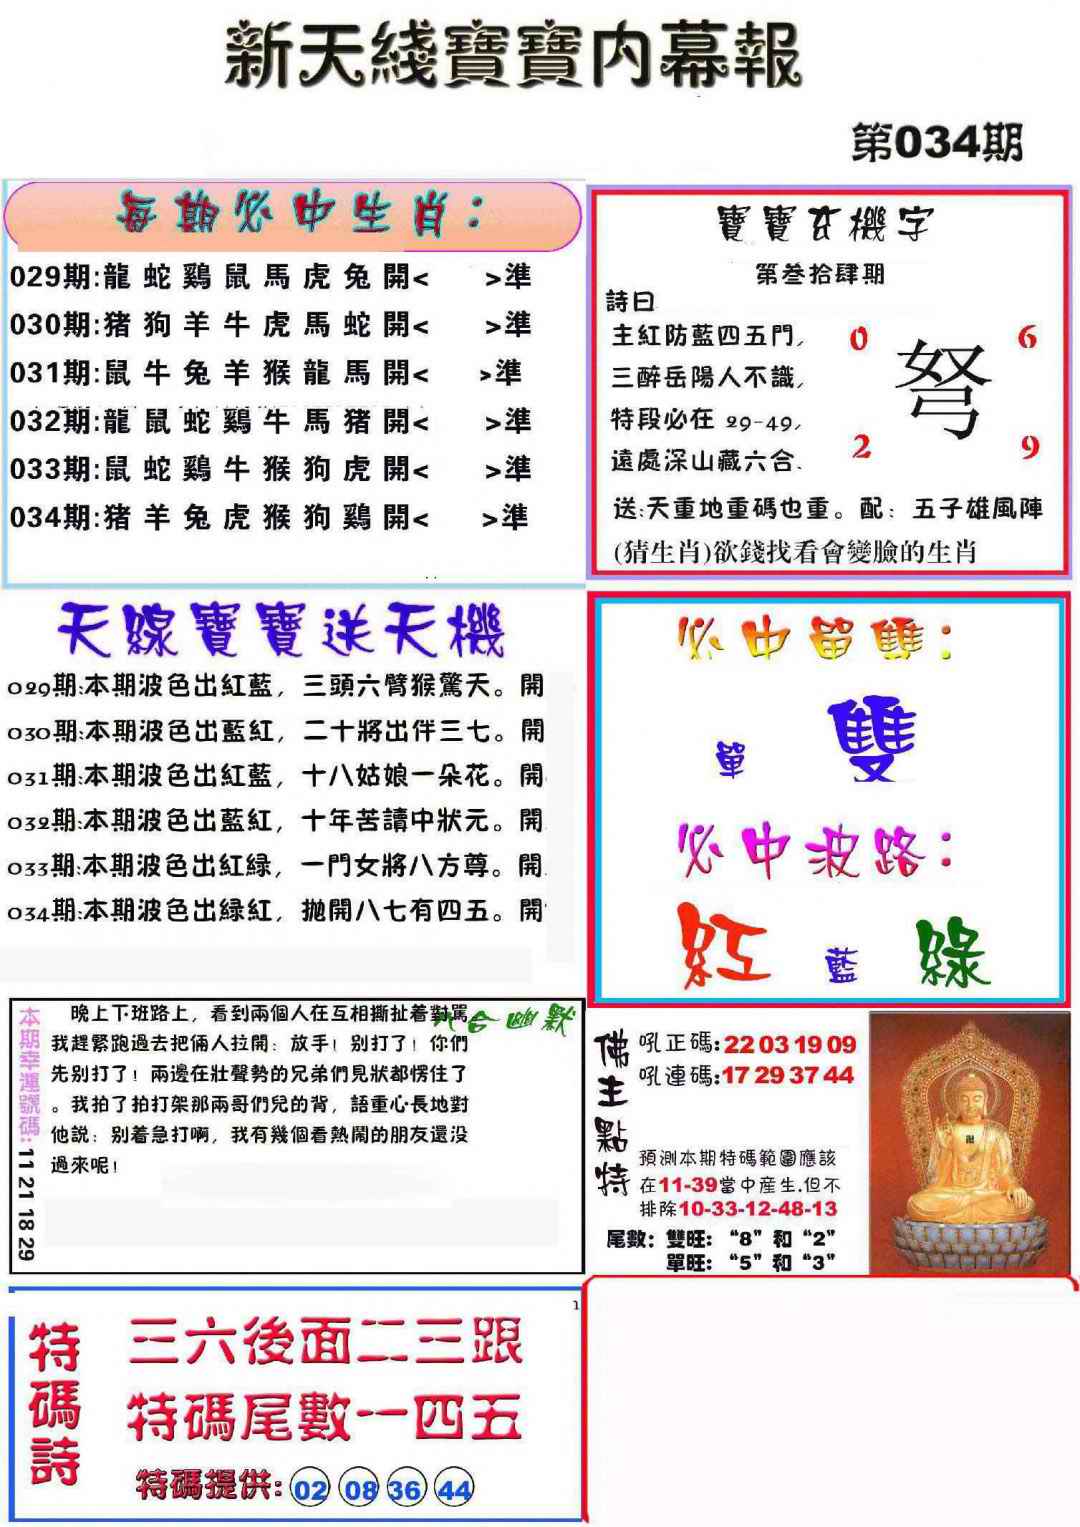 新天綫寶寶内幕報
第034期
每期必中生肖：
029期:龍 蛇 鷄 鼠 馬 虎 兔 開< >準
030期:猪 狗 羊 牛 虎 馬 蛇 開< >準
031期:鼠 牛 兔 羊 猴 龍 馬 開< >準
032期:龍 鼠 蛇 鷄 牛 馬 猪 開< >準
033期:鼠 蛇 鷄 牛 猴 狗 虎 開< >準
034期:猪 羊 兔 虎 猴 狗 鷄 開< >準
寶寶玄機字
第叁拾肆期
詩曰
主紅防藍四五門,
三醉岳陽人不識,
特段必在 29-49,
遠處深山藏六合.
0 6
弩
2 9
送:天重地重碼也重。配：五子雄風陣
(猜生肖)欲錢找看會變臉的生肖
天線寶寶送天機
029期:本期波色出紅藍，三頭六臂猴驚天。開
030期:本期波色出藍紅，二十將出伴三七。開
031期:本期波色出紅藍，十八姑娘一朵花。開
032期:本期波色出藍紅，十年苦讀中狀元。開
033期:本期波色出紅綠，一門女將八方尊。開
034期:本期波色出綠紅，抛開八七有四五。開
必中單雙：
單 雙
必中波路：
紅 藍 綠
本期幸運號碼: 11 21 18 29
六合幽默
晚上下班路上，看到兩個人在互相撕扯着對駡
我趕緊跑過去把倆人拉開：放手！别打了！你們
先别打了！兩邊在壯聲勢的兄弟們見狀都愣住了
。我拍了拍打架那兩哥們兒的背，語重心長地對
他説：别着急打啊，我有幾個看熱鬧的朋友還没
過來呢！
佛主點特
吼正碼:22 03 19 09
吼連碼:17 29 37 44
預測本期特碼範圍應該
在11-39當中産生.但不
排除10-33-12-48-13
尾數：雙旺：“8”和“2”
單旺：“5”和“3”
特碼詩
三六後面二三跟
特碼尾數一四五
特碼提供: 02 08 36 44